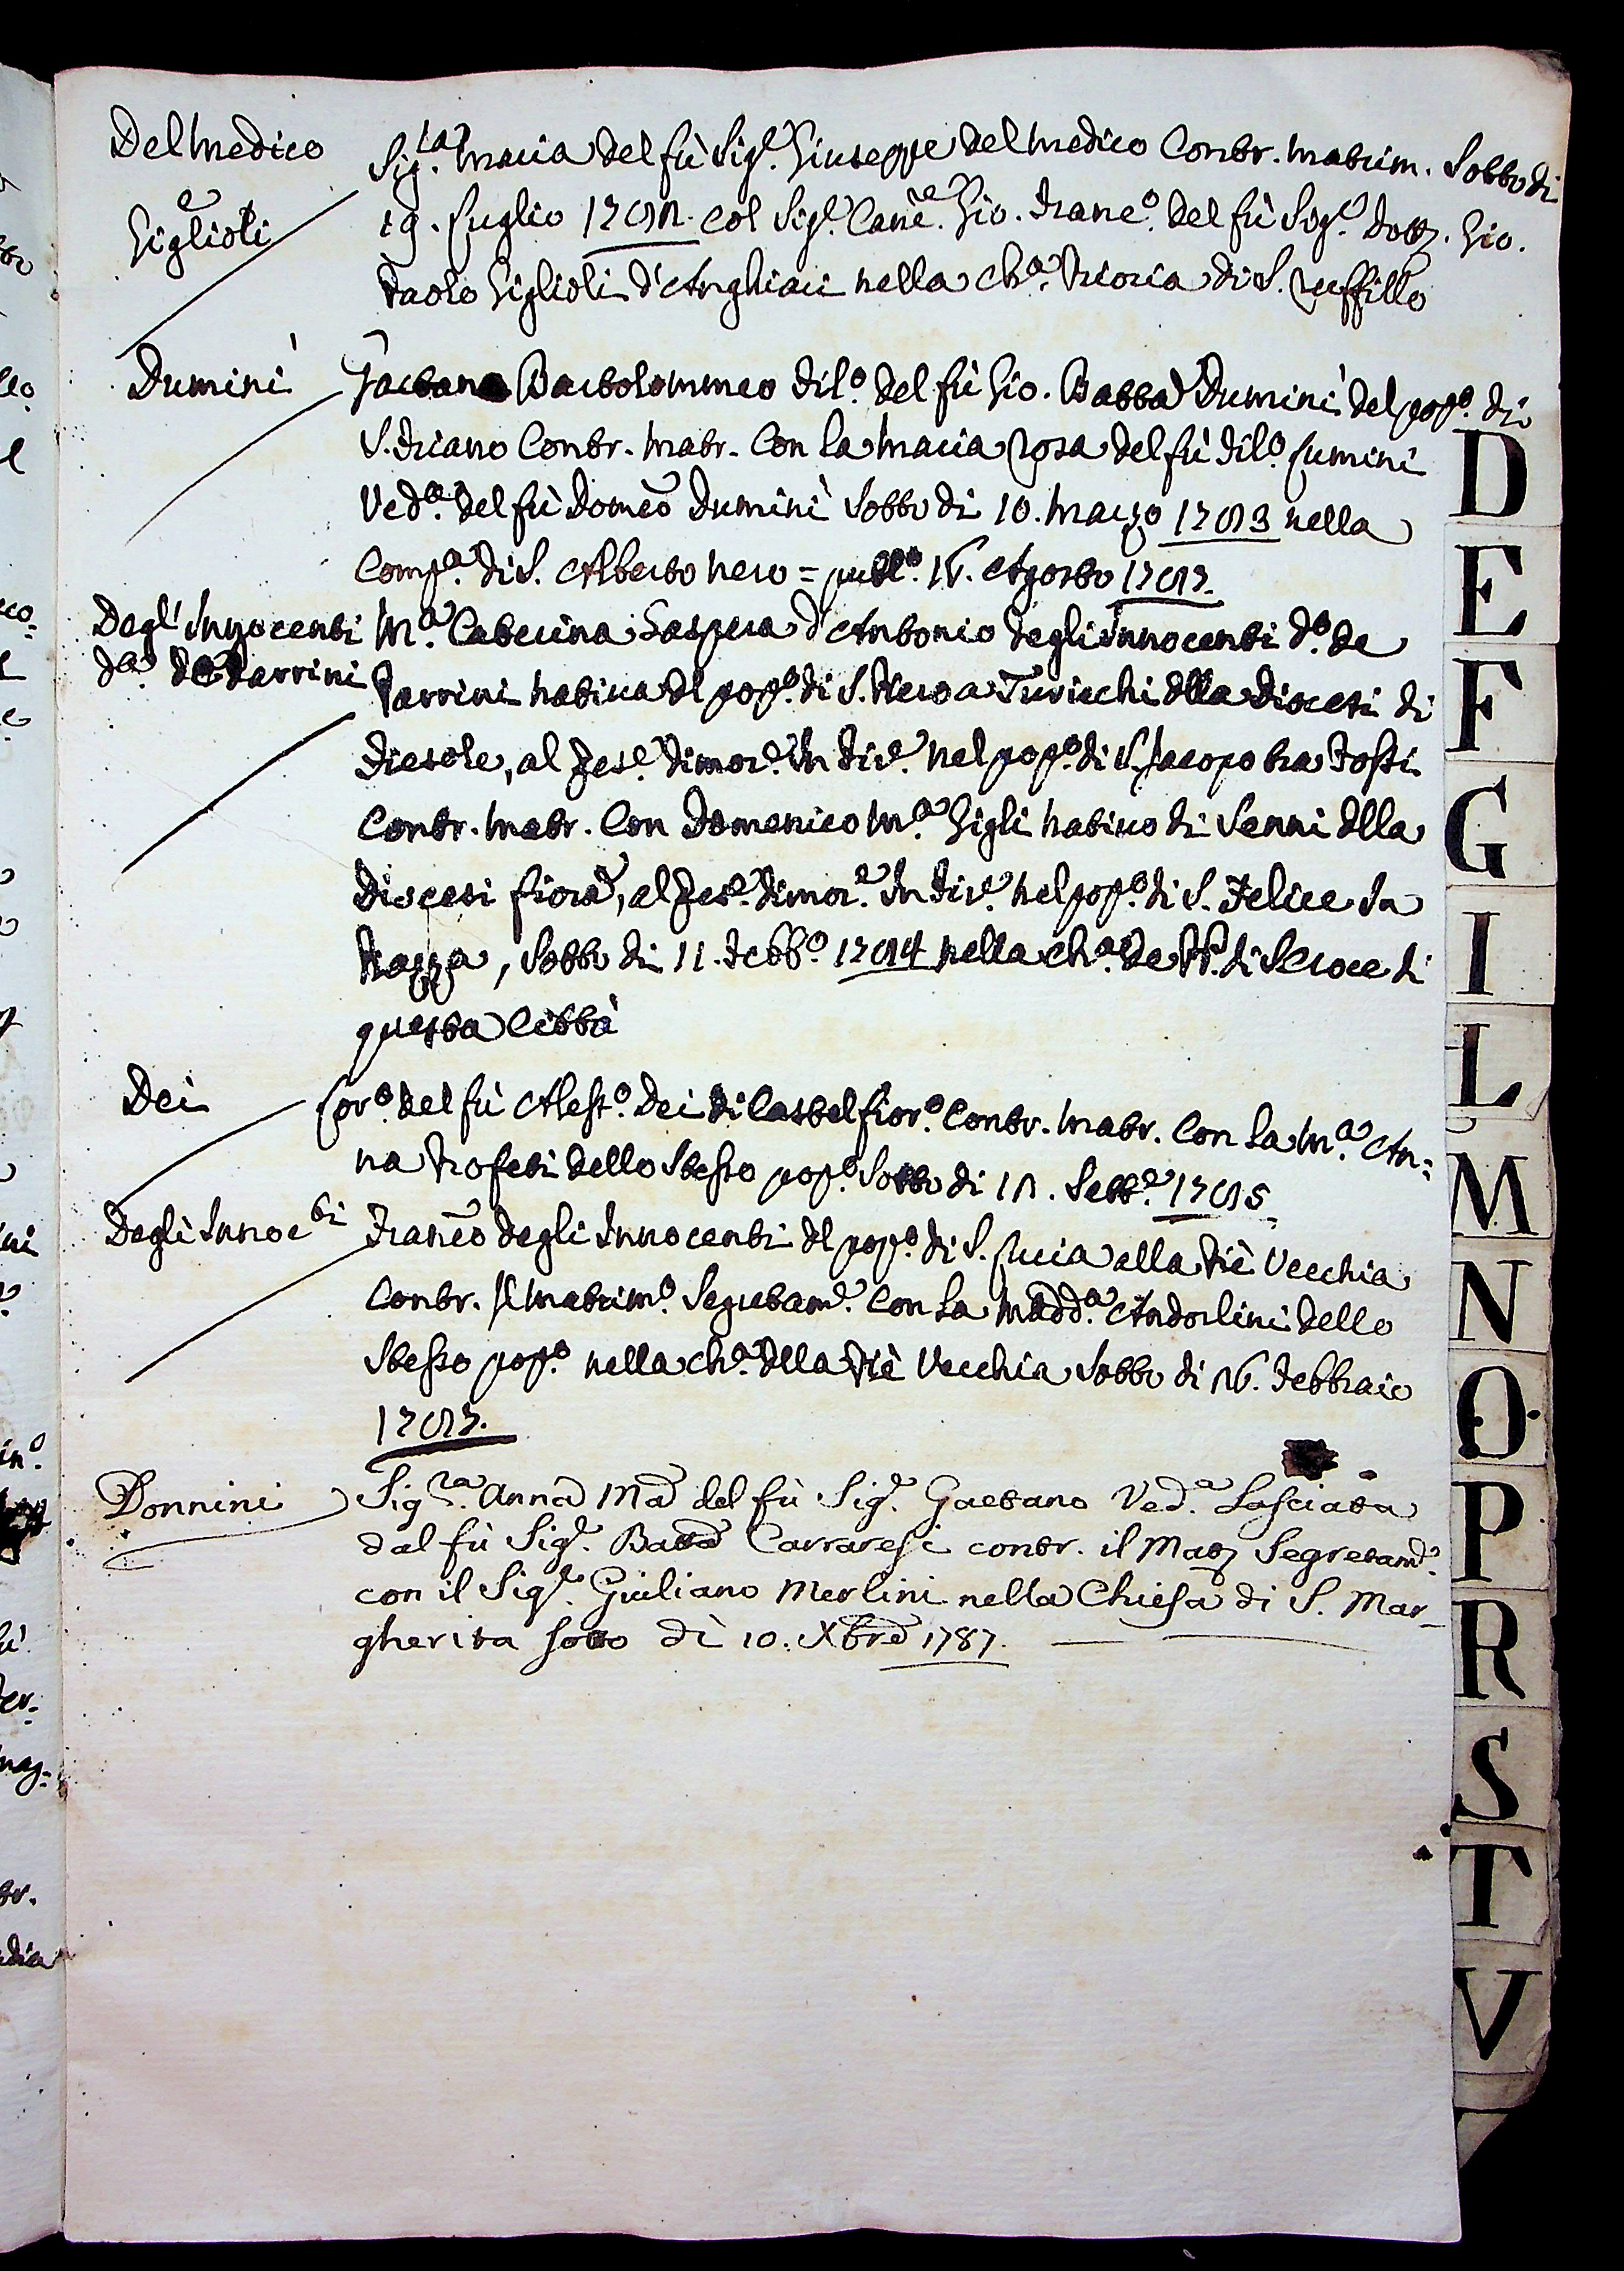 Del Medico
e
Giglioli
Sig.ra Maria del fù Sig.e Giuseppe del Medico Contr. Matrim. Sotto di
19. Luglio 1782. col Sig.e Canc.e Gio. Franc.o del fù Sig.e Dott. Gio.
Paolo Giglioli d'Anghiari nella Ch.a Prioria di S. Ruffillo
Dumini
Gaetano Bartolommeo Fil.o del fù Gio. Batta Dumini del pop.o di
S. Friano Contr. Matr. Con La Maria Rosa del fù Fil.o Lumini
Ved.a del fù Domeco Dumini Sotto di 10. Marzo 1783 nella
Comp.a di S. Alberto Nero = publ.o Agosto 1787.
Degl' Innocenti
d.a de Parrini
M.a Caterina Gaspera d'Antonio degli Innocenti d.o de
Parrini nativa del pop.o di S. Piero a Turicchi dlla Diocesi di
Fiesole, al pres.e dimor.e in Fir.e nel pop.o di S. Jacopo tra Fossi
Contr. Matr. Con Domenico M.a Gigli nativo di Senni dlla
Diocesi fiora, al pres.e dimor.e in Fir.e nel pop.o di S. Felice in
Piazza, Sotto di 11. Febb.o 1784 nella Ch.a de PP. di S. Croce di
questa Città
Dei
Lor.o del fù Aless.o Dei di Castelfior.o Contr. Matr. Con La M.a An=
na Profeti dello Stesso pop.o Sotto di 12. Sett.e 1785
Degli Innoc.ti
Franco degli Innocenti dl pop.o di S. Lucia alla Piè Vecchia
Contr. il matrim.o Segretam.e Con La Madd.a Andorlini dello
Stesso pop.o nella Ch.a dlla Piè Vecchia Sotto di 26. Febbraio
1787.
Donnini
Sig.ra Anna Ma del fù Sig.e Gaetano Ved.a Lasciata
dal fù Sig.e Batta Carraresi contr. il Matr Segretam.e
con il Sig.e Giuliano Merlini nella Chiesa di S. Mar-
gherita sotto dì 10. Xbre 1787.
D
E
F
G
I
L
M
N
O
P
R
S
T
V